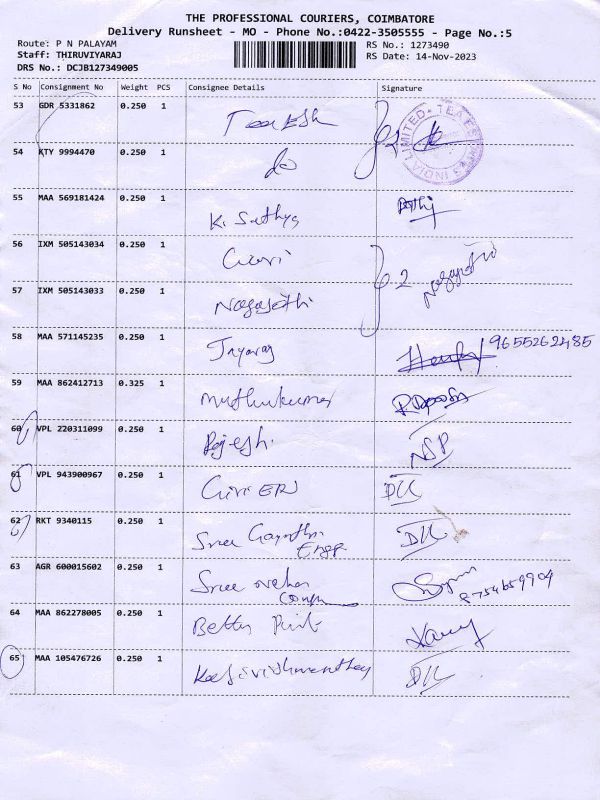 THE PROFESSIONAL COURIERS, COIMBATORE
Delivery Runsheet - MO - Phone No.:0422-3505555 - Page No.:5
Route: P N PALAYAM
RS No.: 1273490
Staff: THIRUVIYARAJ
RS Date: 14-Nov-2023
DRS No.: DCJB127349005
S No Consignment No Weight PCS Consignee Details Signature
53 GDR 5331862 0.250 1
54 KTY 9994470 0.250 1 do
55 MAA 569181424 0.250 1 K. Sathya
56 IXM 505143034 0.250 1
57 IXM 505143033 0.250 1 Nagajothi 2 Nagajothi
58 MAA 571145235 0.250 1 Jayaraj 9655262485
59 MAA 862412713 0.325 1 Muthukumar
60 VPL 220311099 0.250 1 Rajesh. NSP
61 VPL 943900967 0.250 1
62 RKT 9340115 0.250 1 Sree Gayathri
Engg
63 AGR 600015602 0.250 1 Sree 8754659904
64 MAA 862278005 0.250 1 Print
65 MAA 105476726 0.250 1